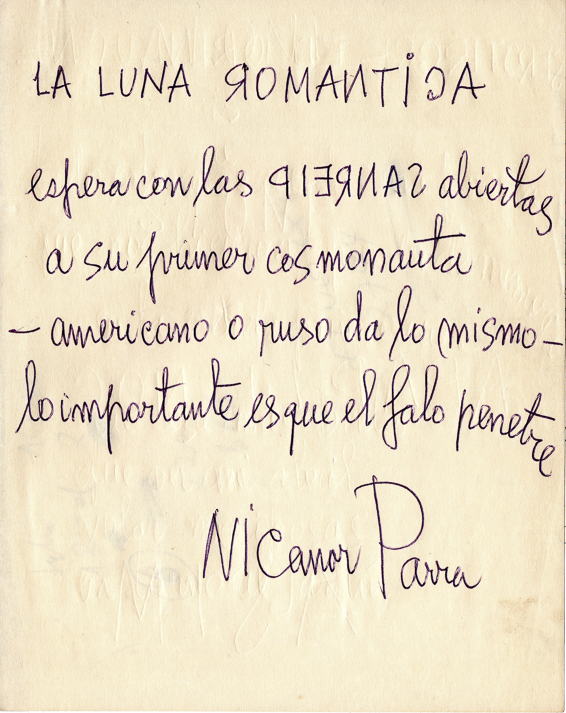 LA LUNA ROMANTICA
espera con las PIERNAS abiertas
a su primer cosmonauta
– americano o ruso da lo mismo –
lo importante es que el falo penetre
Nicanor Parra